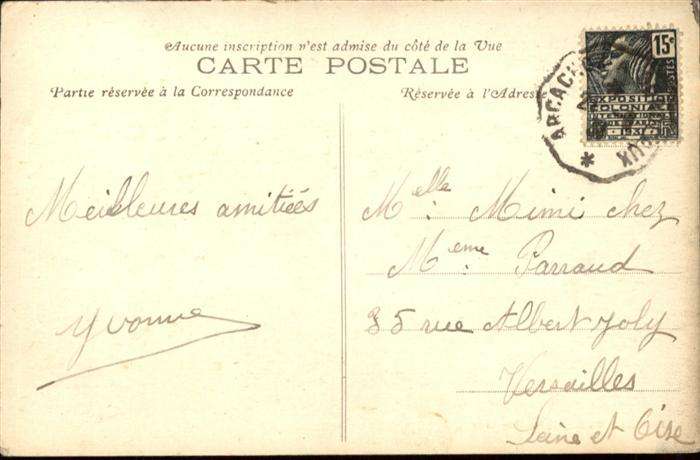 Aucune inscription n'est admise du côté de la Vue
CARTE POSTALE
Partie réservée à la Correspondance
Réservée à l'Adresse
15c
POSTES
EXPOSITION
COLONIALE
INTERNATIONALE
ARCACHON
Meilleures amitiées
Yvonne
Melle: Mimi chez
Meme: Parraud
35 rue Albert Joly
Versailles
Seine et Oise